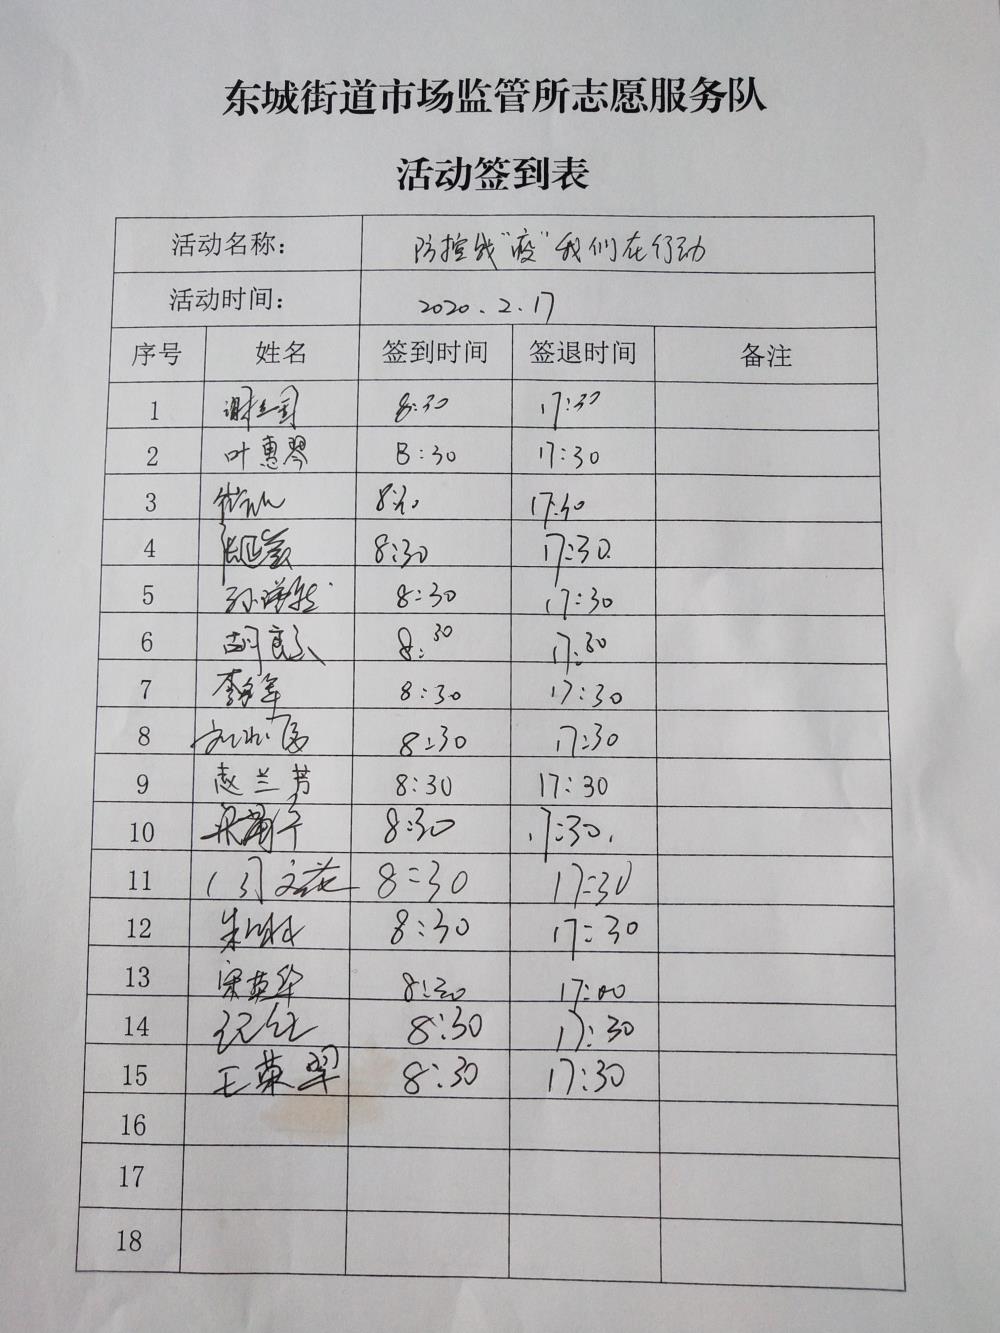 东城街道市场监管所志愿服务队
活动签到表
活动名称： 防控战“疫”我们在行动
活动时间： 2020.2.17
序号 姓名 签到时间 签退时间 备注
1 8:30 17:30
2 叶惠琴 8:30 17:30
3 8:30 17:30
4 8:30 17:30
5 8:30 17:30
6 8:30 17:30
7 8:30 17:30
8 8:30 17:30
9 赵兰芳 8:30 17:30
10 8:30 17:30
11 8:30 17:30
12 8:30 17:30
13 宋英华 8:30 17:00
14 8:30 17:30
15 王荣翠 8:30 17:30
16
17
18